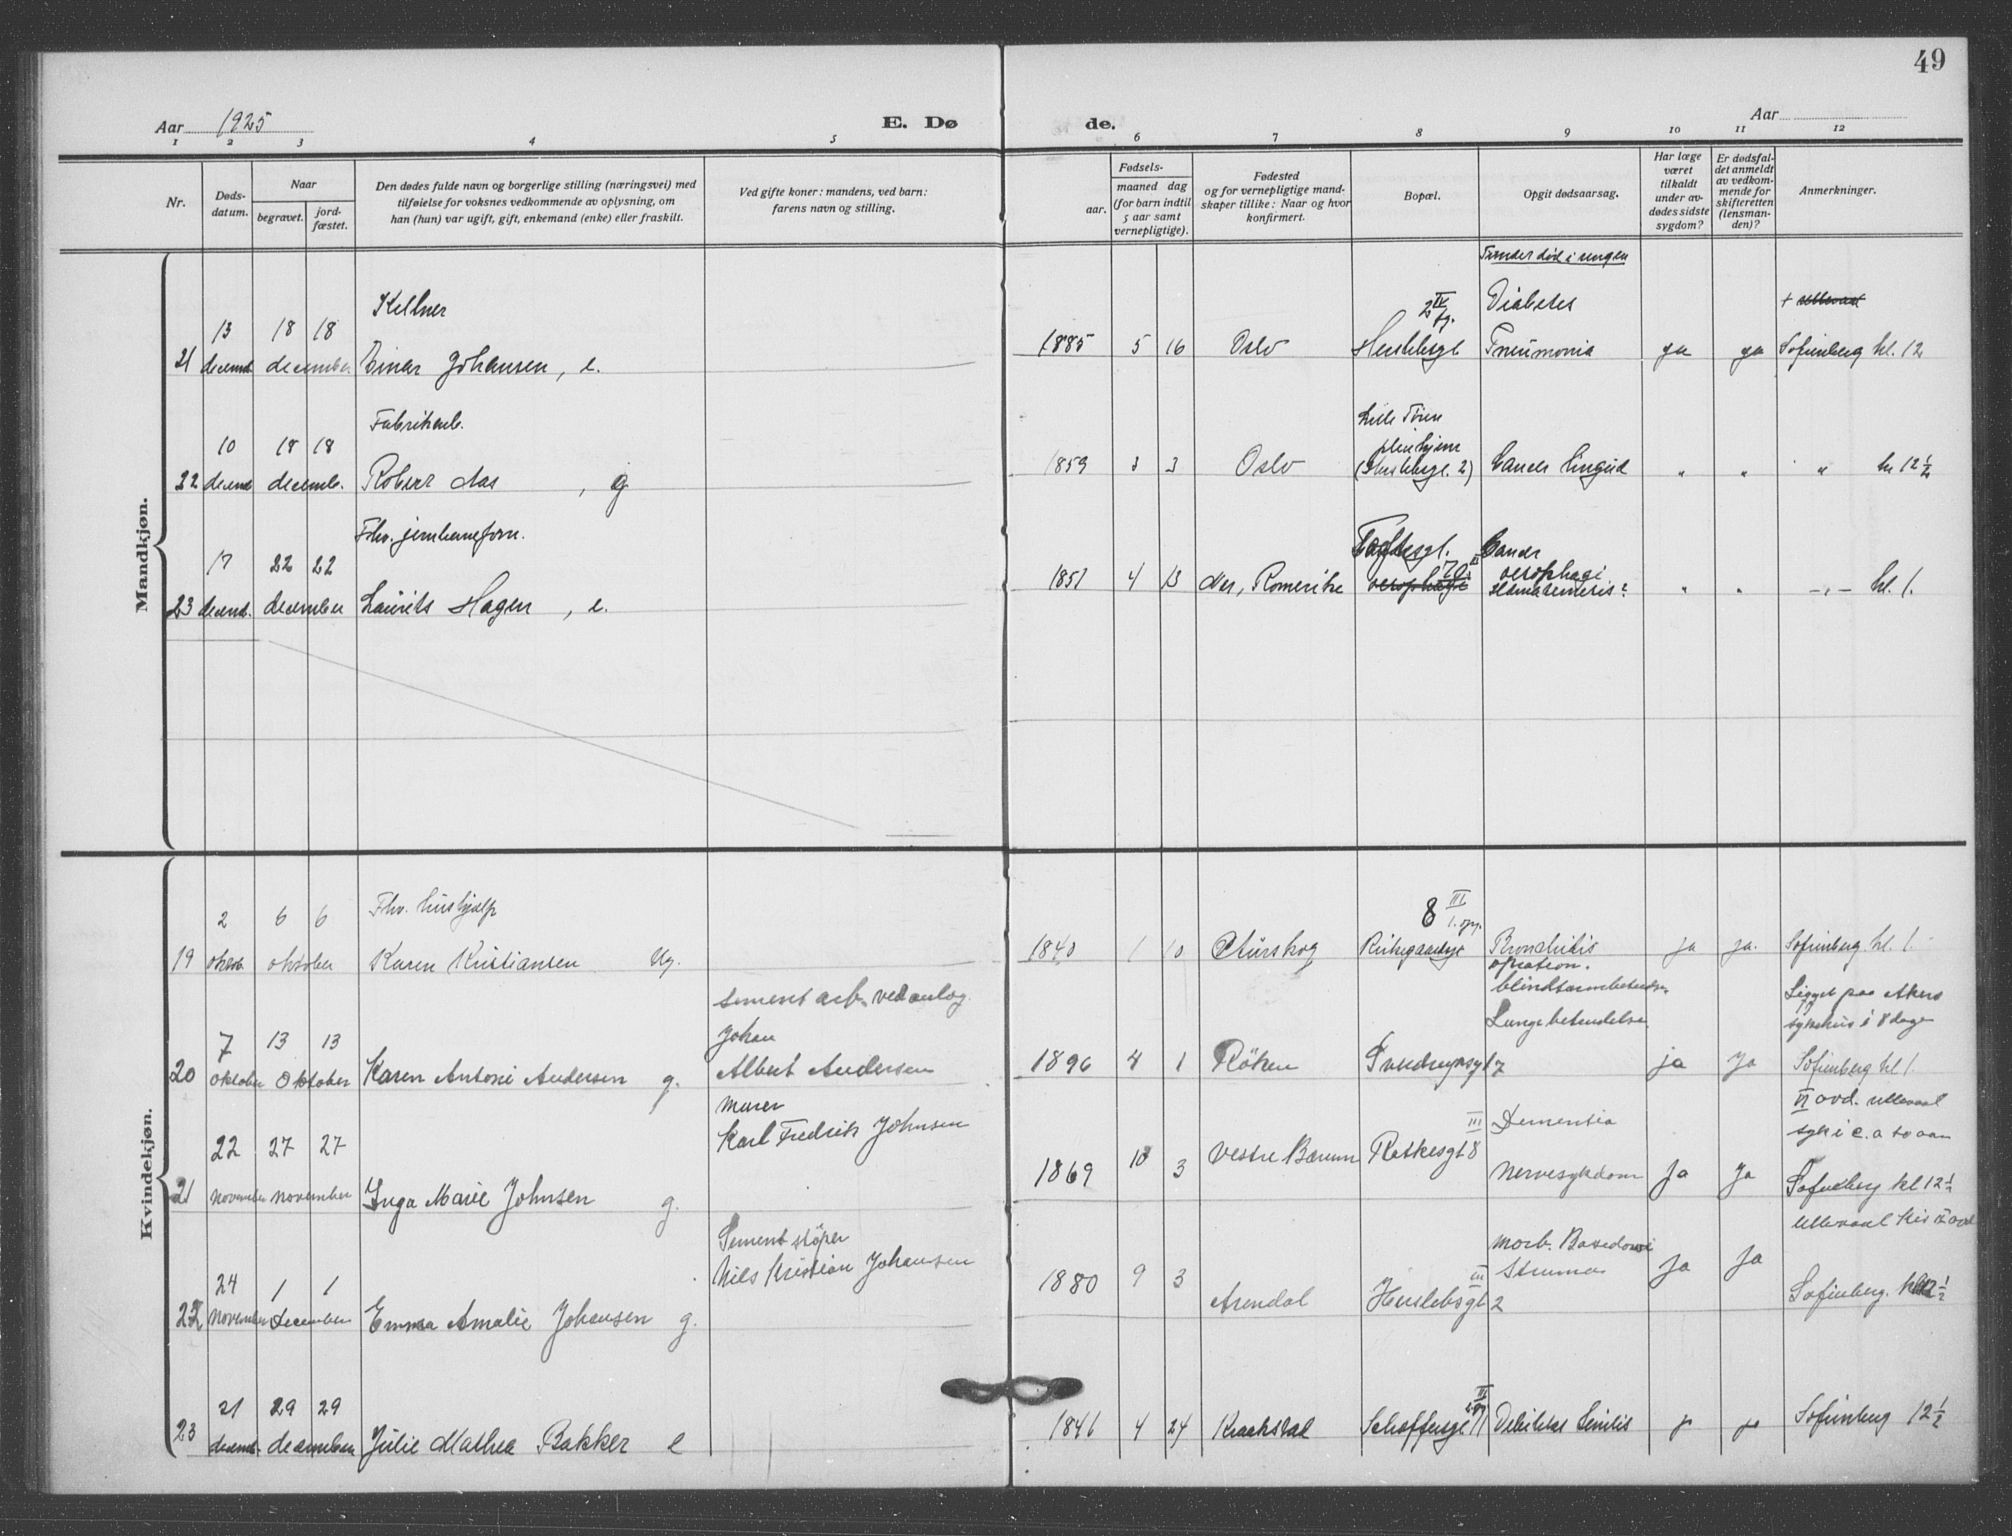 49
Aar 1925
E. Dø
de.
Aar
1 2 3 4 5 6 7 8 9 10 11 12
Nr.
Døds-
datum.
Naar
begravet.
jord-
fæstet.
Den dødes fulde navn og borgerlige stilling (næringsvei) med
tilføielse for voksnes vedkommende av oplysning, om
han (hun) var ugift, gift, enkemand (enke) eller fraskilt.
Ved gifte koner: mandens, ved barn:
farens navn og stilling.
Fødsels-
aar.
maaned dag
(for barn indtil
5 aar samt
vernepligtige).
Fødested
og for vernepligtige mand-
skaper tillike: Naar og hvor
konfirmert.
Bopæl.
Opgit dødsaarsag.
Har læge
været
tilkaldt
under av-
dødes sidste
sygdom?
Er dødsfal-
det anmeldt
av vedkom-
mende for
skifteretten
(lensman-
den)?
Anmerkninger.
Mandkjøn.
Kellner
13 18 18
21 decemb. december Einar Johansen, e.
1885 5 16 Oslo
2 IV
Herslebsgt
Diabetes
Pneumonia
ja ja
+ ullevaal
Sofienberg kl. 12
Fabrikarb.
10 18 18
22 decemb. decemb. Robert Aas, g
1859 3 3 Oslo
Lille Tøien
pleiehjem
(Herslebsgt. 2)
Cancer
" "
" kl 12 1/2
Fhv.
17 22 22
23 decemb. december Laurits Hagen, e.
1851 4 13 Nes, Romerike
70
Cancer
oesophagi
" "
-"- kl. 1.
Kvindekjøn.
Fhv. hushjælp
2 6 6
19 oktob. oktober Karen Kristiansen Ug.
1840 1 10 Aurskog
8 III
1. opg.
Kirkegaardsgt
Bronchitis
ja ja.
Sofienberg kl. 1.
Sement arb. ved anlæg.
Johan
7 13 13
20 oktober oktober Karen Antonie Andersen g.
Albert Andersen
1896 4 1 Røken
Sverdrupsgt 7
operation.
blindtarmbetendse
Lungebetendelse
ja ja
Ligget paa Akers
sykehus i 8 dage
Sofienberg kl 1.
murer
Karl Fredrik Johnsen
22 27 27
21 november november Inga Marie Johnsen g.
1869 10 3 Vestre Bærum
III
Ratkesgt 8
Dementia
Nervesykdom
Ja Ja
VI avd. ullevaal
syk i c. a to aar
Sofienberg kl 12 1/2
Sement støper
Nils Kristian Johansen
24 1 1
22 november december Emma Amalie Johansen g.
1880 9 3 Arendal
III
Herslebsgt 2
Morb. Basedowi
Struma
Ja Ja
Ullevaal
Sofienberg. kl 12 1/2
21 29 29
23 decemb. december Julie Mathea Bakker e
1846 4 24 Kraakstad
III
Schoffersgt 11
Debilitas Senilis
ja ja
Sofienberg 12 1/2